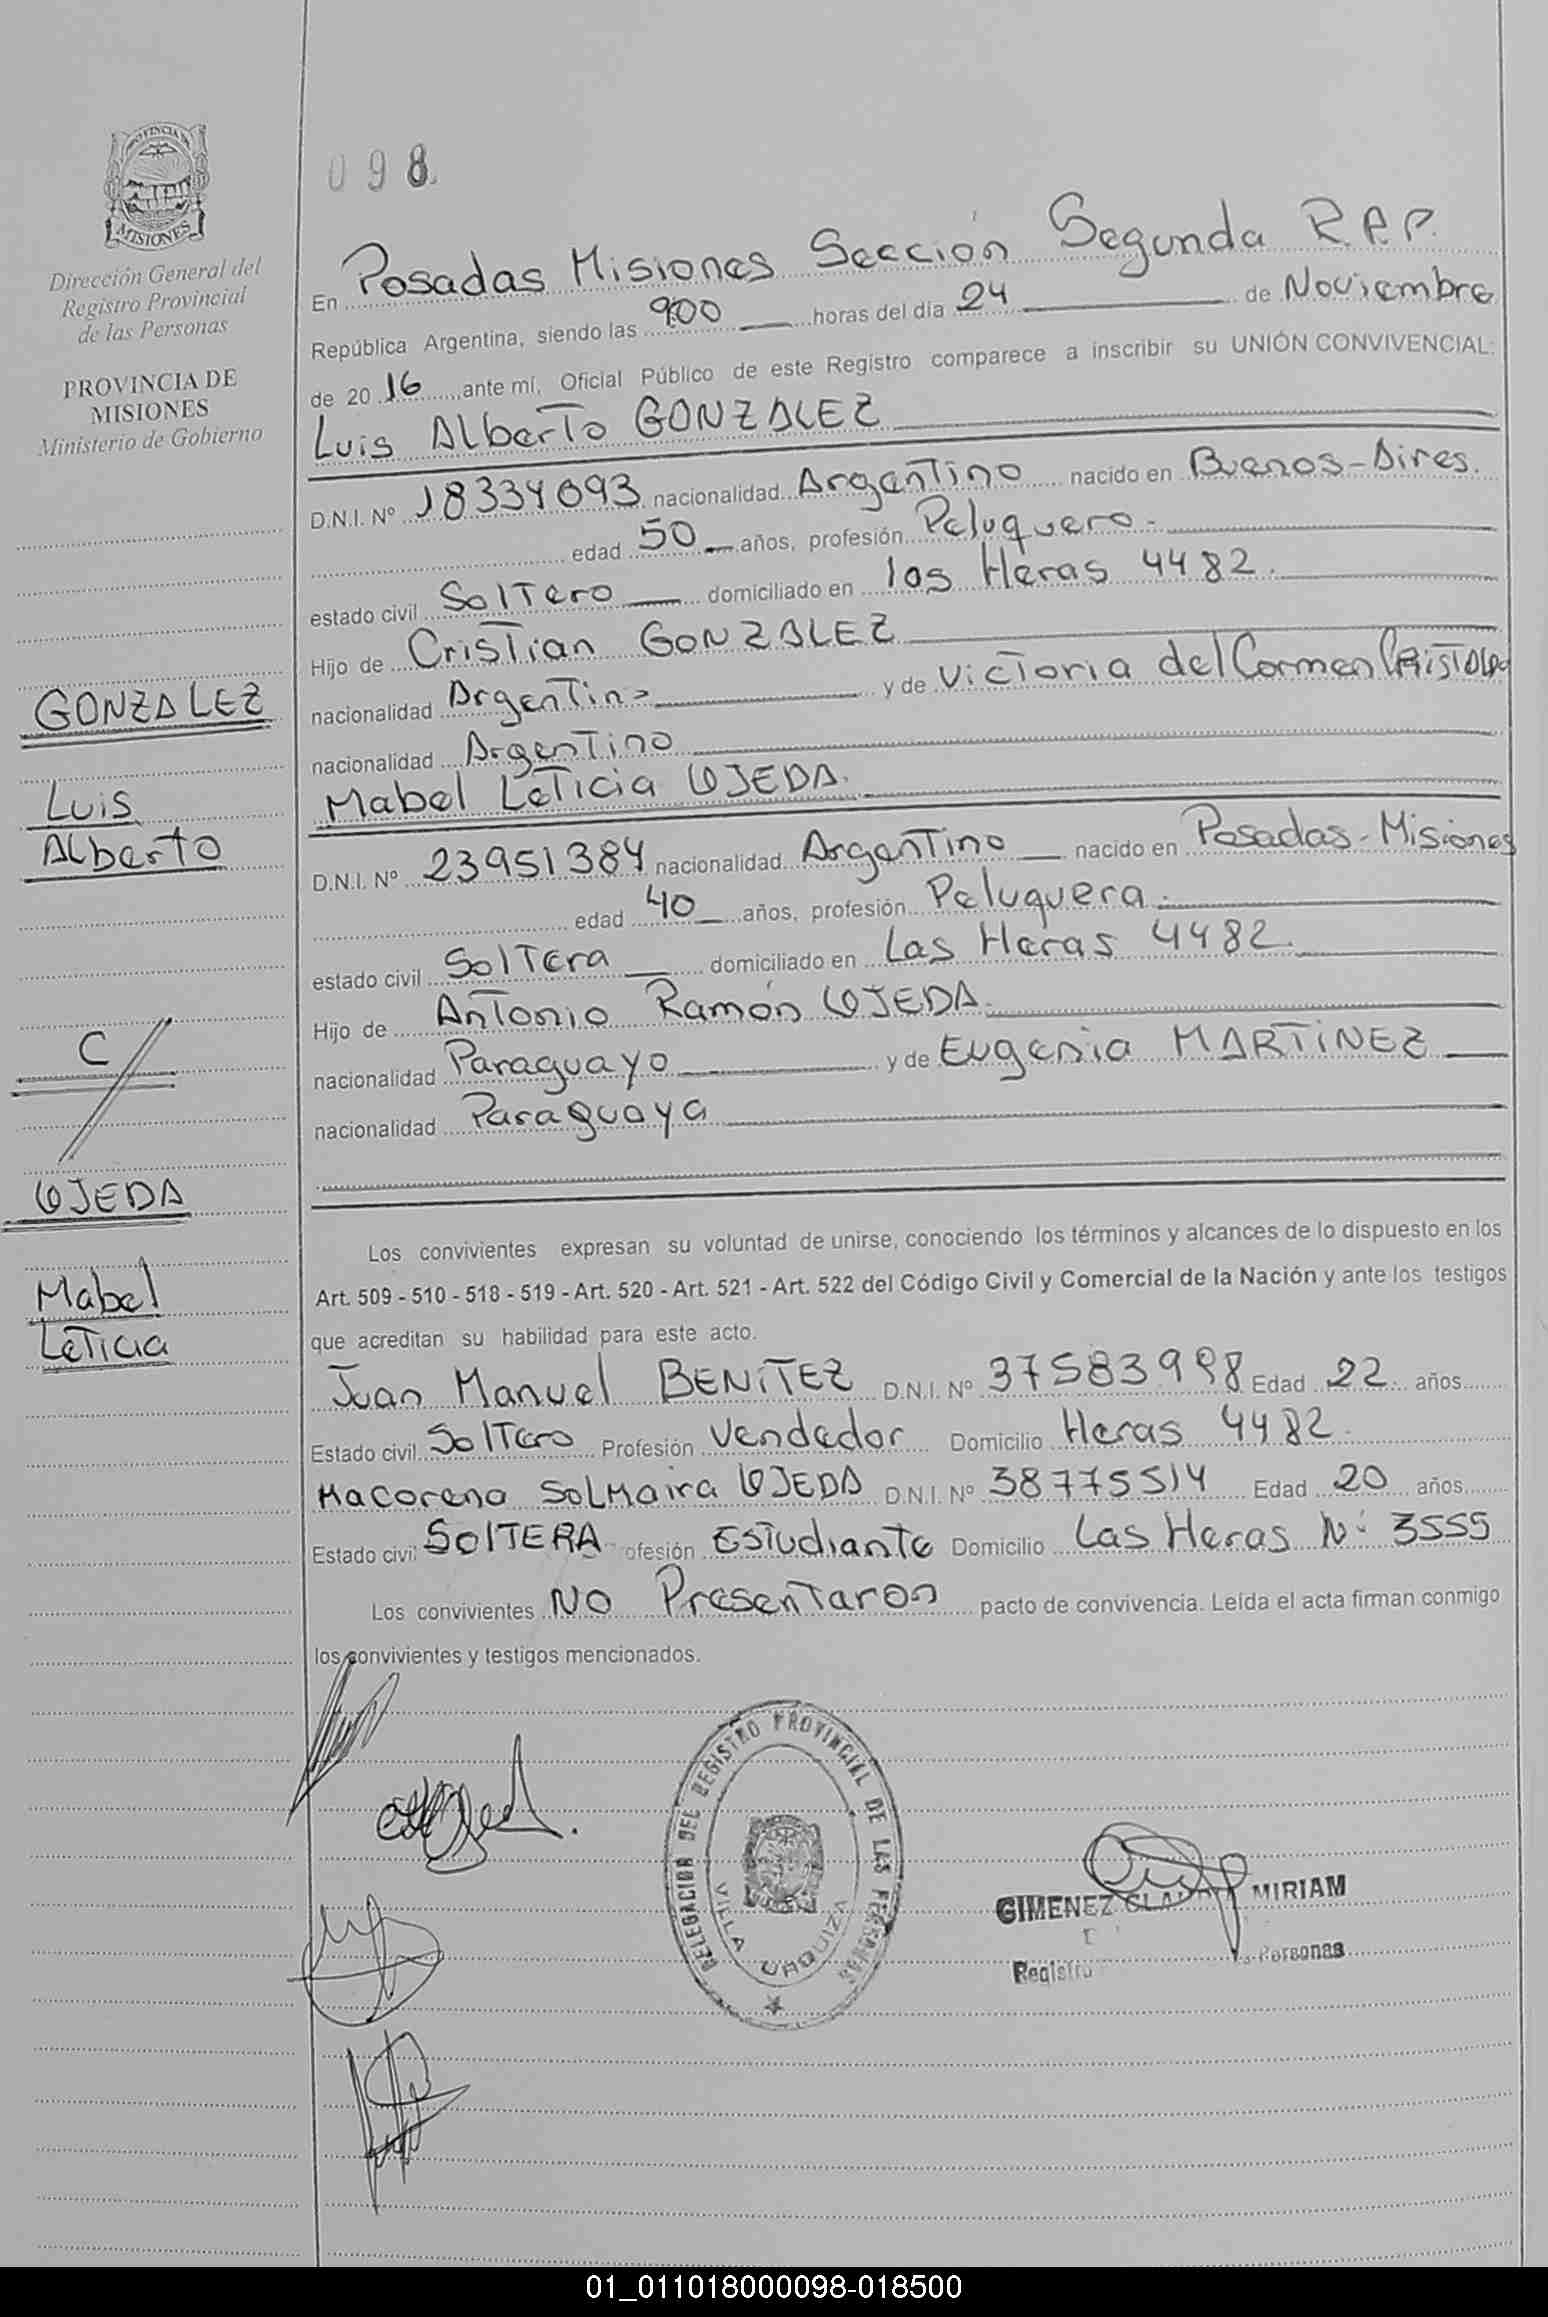 PROVINCIA DE
MISIONES
Dirección General del
Registro Provincial
de las Personas
PROVINCIA DE
MISIONES
Ministerio de Gobierno
GONZALEZ
Luis
Alberto
C/
OJEDA
Mabel
Leticia
098.
En Posadas Misiones Sección Segunda R.P.P.
República Argentina, siendo las 900 horas del día 24 de Noviembre
de 2016 ante mí, Oficial Público de este Registro comparece a inscribir su UNIÓN CONVIVENCIAL:
Luis Alberto GONZALEZ
D.N.I. Nº 18334093 nacionalidad Argentino nacido en Buenos-Aires.
edad 50 años, profesión Peluquero.-
estado civil Soltero domiciliado en las Heras 4482.
Hijo de Cristian GONZALEZ
nacionalidad Argentino y de Victoria del Carmen
nacionalidad Argentino
Mabel Leticia OJEDA.
D.N.I. Nº 23951384 nacionalidad Argentino nacido en Posadas-Misiones
edad 40 años, profesión Peluquera.
estado civil Soltera domiciliado en Las Heras 4482.
Hijo de Antonio Ramón OJEDA.
nacionalidad Paraguayo y de Eugenia MARTiNEZ
nacionalidad Paraguaya
Los convivientes expresan su voluntad de unirse, conociendo los términos y alcances de lo dispuesto en los
Art. 509 - 510 - 518 - 519 - Art. 520 - Art. 521 - Art. 522 del Código Civil y Comercial de la Nación y ante los testigos
que acreditan su habilidad para este acto.
Juan Manuel BENiTEZ D.N.I. Nº 37583998 Edad 22 años
Estado civil Soltero Profesión Vendedor Domicilio Heras 4482.
Macorena Solmaira OJEDA D.N.I. Nº 38775514 Edad 20 años
Estado civil SOlTERA ofesión Estudiante Domicilio Las Heras Nº 3555
Los convivientes NO Presentaron pacto de convivencia. Leída el acta firman conmigo
los convivientes y testigos mencionados.
DELEGACION DEL REGISTRO PROVINCIAL DE LAS PERSONAS
VILLA URQUIZA
GIMENEZ CLAUDIA MIRIAM
Registro Personas
01_011018000098-018500